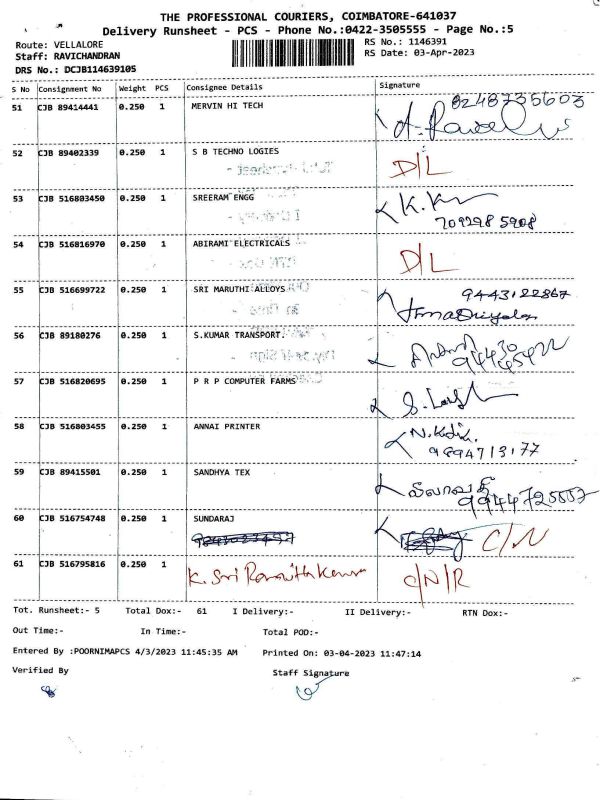 THE PROFESSIONAL COURIERS, COIMBATORE-641037
Delivery Runsheet - PCS - Phone No.:0422-3505555 - Page No.:5
Route: VELLALORE
RS No.: 1146391
Staff: RAVICHANDRAN
RS Date: 03-Apr-2023
DRS No.: DCJB114639105
S No Consignment No Weight PCS Consignee Details Signature
51 CJB 89414441 0.250 1 MERVIN HI TECH
8248735603
52 CJB 89402339 0.250 1 S B TECHNO LOGIES D/L
53 CJB 516803450 0.250 1 SREERAM ENGG K.K
709298 5908
54 CJB 516816970 0.250 1 ABIRAMI ELECTRICALS D/L
55 CJB 516699722 0.250 1 SRI MARUTHI ALLOYS 9443122867
56 CJB 89180276 0.250 1 S.KUMAR TRANSPORT.
57 CJB 516820695 0.250 1 P R P COMPUTER FARMS
58 CJB 516803455 0.250 1 ANNAI PRINTER
9894713177
59 CJB 89415501 0.250 1 SANDHYA TEX
60 CJB 516754748 0.250 1 SUNDARAJ C/N
61 CJB 516795816 0.250 1 K. Sri C/N/R
Tot. Runsheet:- 5 Total Dox:- 61 I Delivery:- II Delivery:- RTN Dox:-
Out Time:- In Time:- Total POD:-
Entered By :POORNIMAPCS 4/3/2023 11:45:35 AM Printed On: 03-04-2023 11:47:14
Verified By Staff Signature